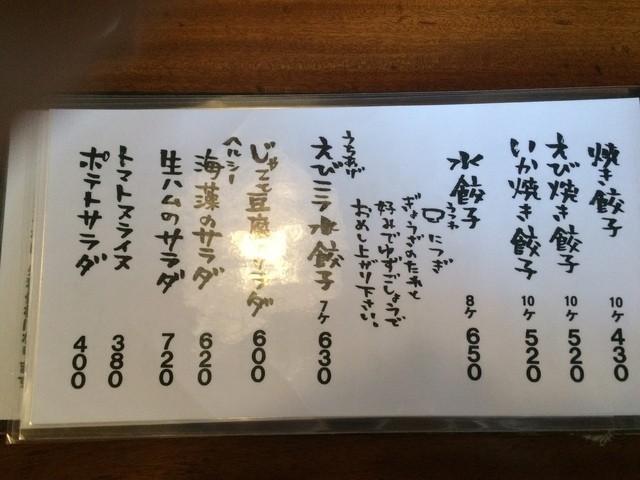 焼き餃子 10ヶ 430
えび焼き餃子 10ヶ 520
いか焼き餃子 10ヶ 520
水餃子 8ヶ 650
につぎ
ぎょうざのたれと
好みでゆずごしょうで
おめし上がり下さい。
えびニラ水餃子 7ヶ 630
じゃこ豆腐サラダ 600
ヘルシー
海藻のサラダ 620
生ハムのサラダ 720
トマトスライス 380
ポテトサラダ 400